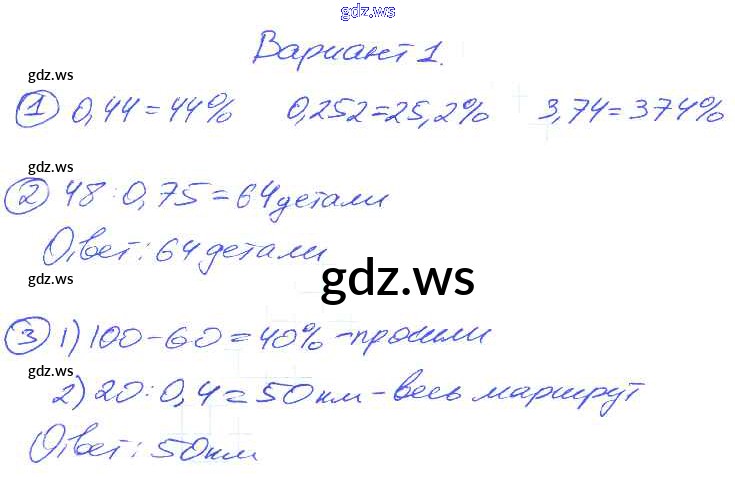 gdz.ws
Вариант 1.
gdz.ws
① 0,44=44% 0,252=25,2% 3,74=374%
gdz.ws
② 48:0,75=64детали
Ответ: 64 детали
gdz.ws
gdz.ws
③ 1) 100-60=40% -прошли
gdz.ws
2) 20:0,4=50км-весь маршрут
Ответ: 50км
gdz.ws